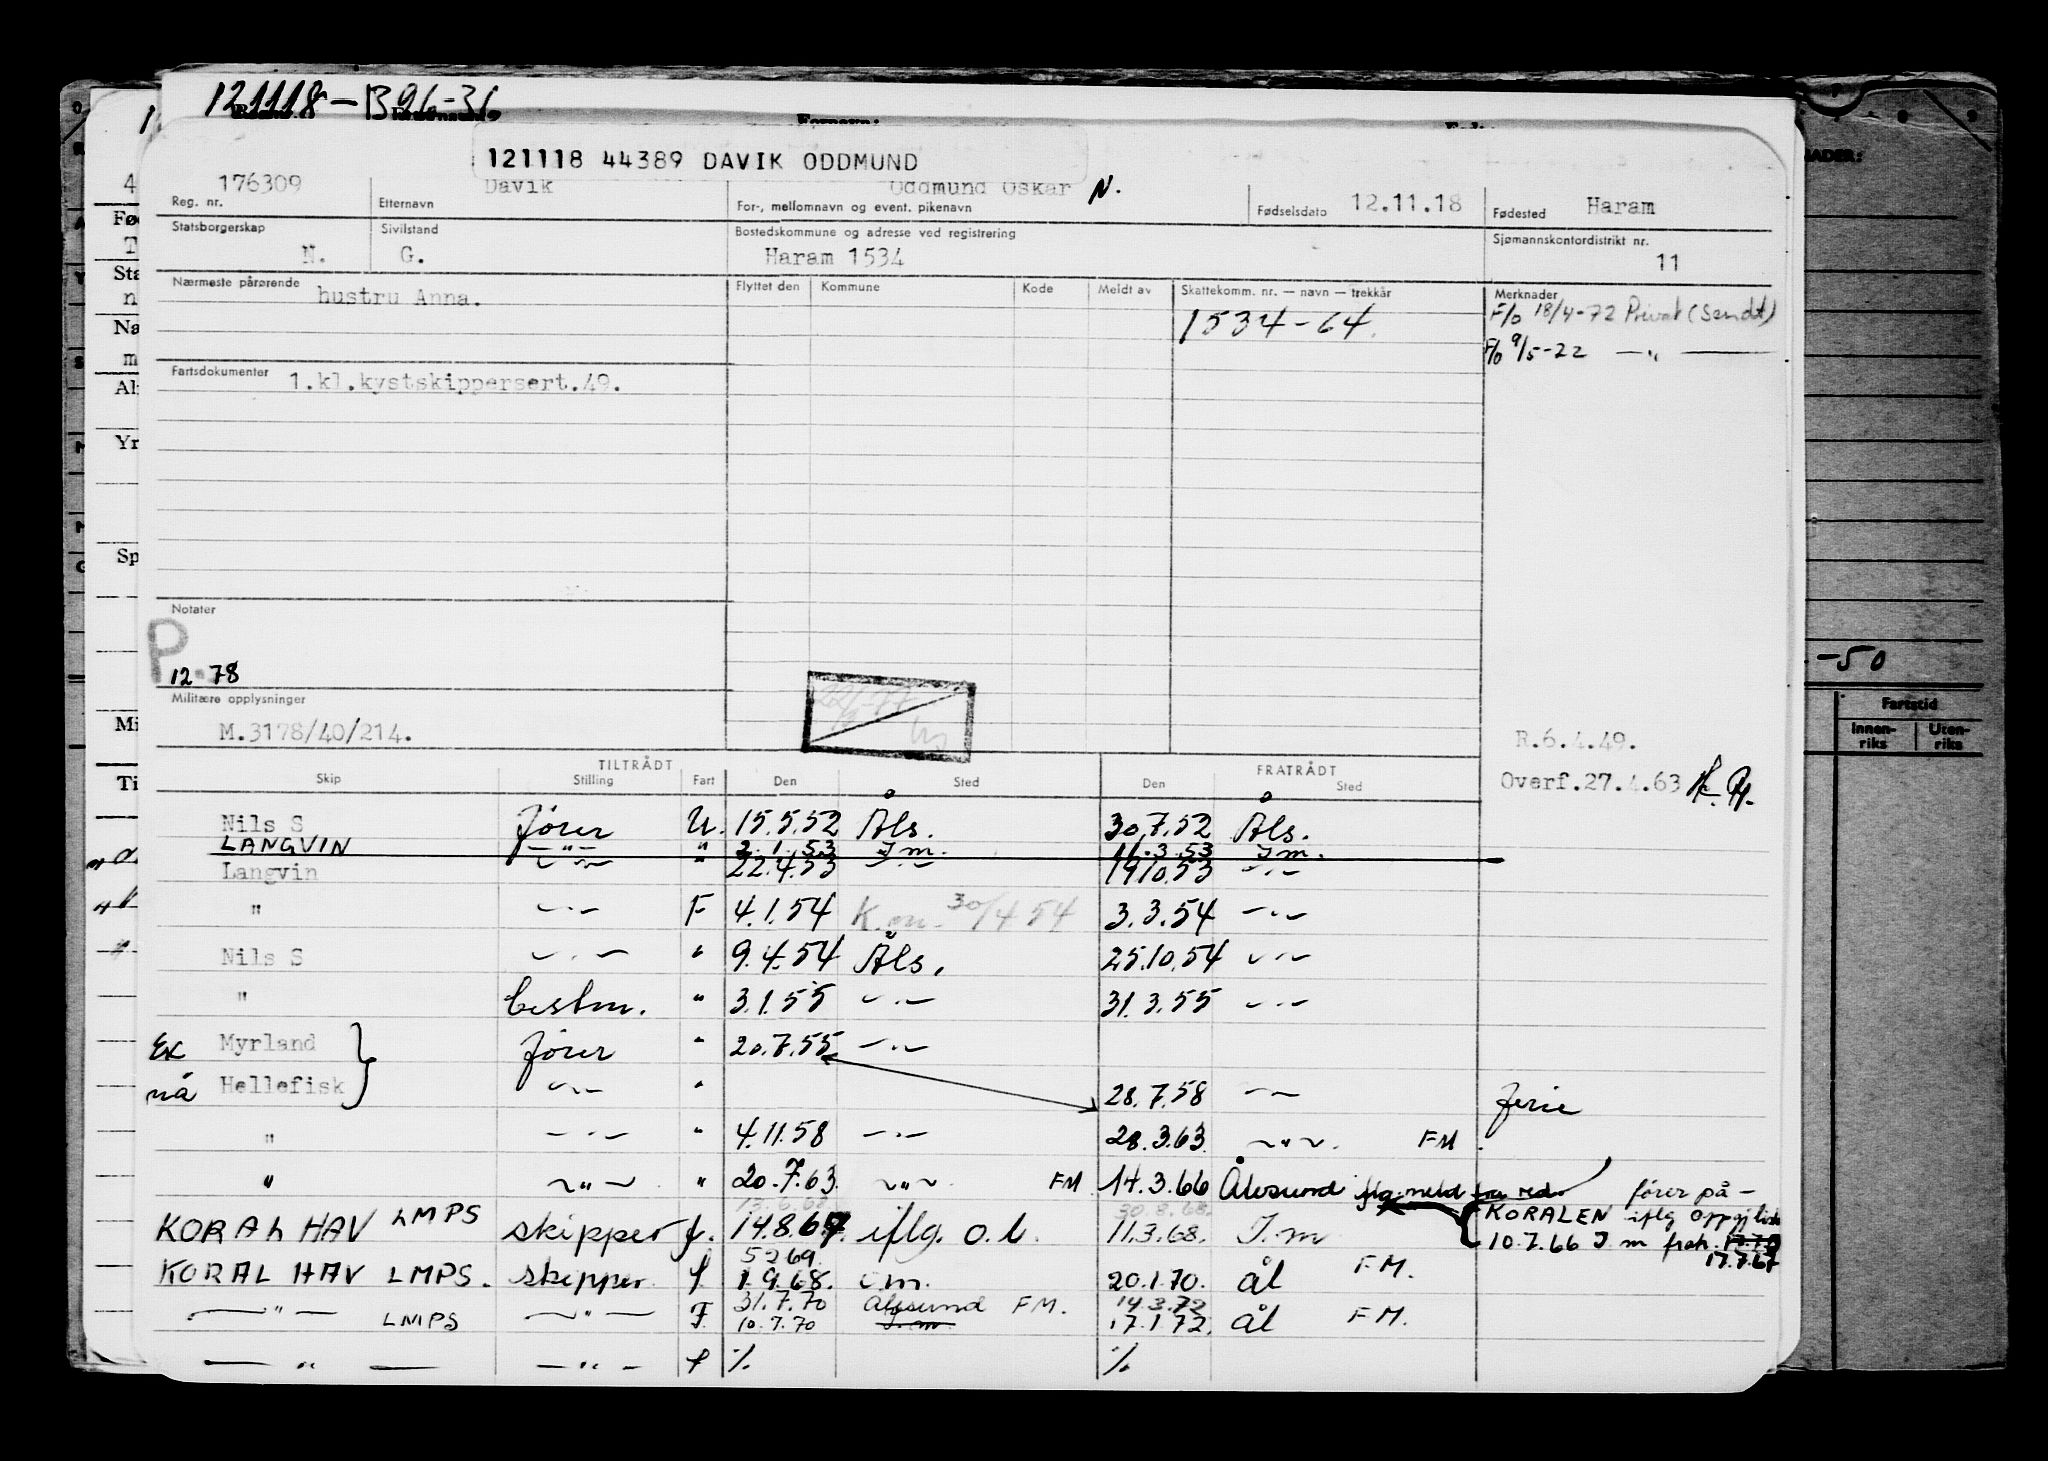 121118-B96-36
121118 44389 DAVIK ODDMUND
176309 Davik Oddmund Oskar N. 12.11.18 Haram
Reg. nr. Etternavn For-, mellomnavn og event. pikenavn Fødselsdato Fødested
Statsborgerskap Sivilstand Bostedskommune og adresse ved registrering Sjømannskontordistrikt nr.
N. G. Haram 1534 11
Nærmeste pårørende hustru Anna. Flyttet den Kommune Kode Meldt av Skattekomm. nr. — navn — trekkår Merknader
1534-64. F/o 18/4-72 Privat (Sendt)
F/o 9/5-22 — " —
Fartsdokumenter 1.kl.kystskippersert.49.
Notater
P.
12-78
-50
Militære opplysninger
M.3178/40/214.
Fartstid
Innenriks Utenriks
R.6.4.49.
Overf.27.4.63
TILTRÅDT FRATRÅDT
Skip Stilling Fart Den Sted Den Sted
Nils S fører U. 15.5.52 Åls. 30.7.52 Åls.
LANGVIN — " — " 2.1.53 I m. 11.3.53 I m.
Langvin — " — " 22.4.53 — " — 19.10.53 — " —
" — " — F 4.1.54 K.m. 30/4 54 3.3.54 — " —
Nils S — " — " 9.4.54 Åls. 25.10.54 — " —
" bestm. " 3.1.55 — " — 31.3.55 — " —
Ex Myrland fører " 20.7.55 — " —
nå Hellefisk — " — " 28.7.58 — " — ferie
" — " — " 4.11.58 — " — 28.3.63 — " — FM.
" — " — " 20.7.63 — " — FM 14.3.66 Ålesund iflg. meld fra red. fører på -
KORALEN iflg oppgj liste
KORAL HAV LMPS skipper f. 14.8.67 iflg. o.l. 11.3.68. I.m
10.7.66 I m fratr.
17.7.67
5 2 69
KORAL HAV LMPS. skipper f 1.9.68. I m. 20.1.70. ål FM.
31.7.70 Ålesund FM. 14.3.72
— " — LMPS — " — F. 10.7.70 I. m. 17.1 72. ål FM.
— " — — " — f % %